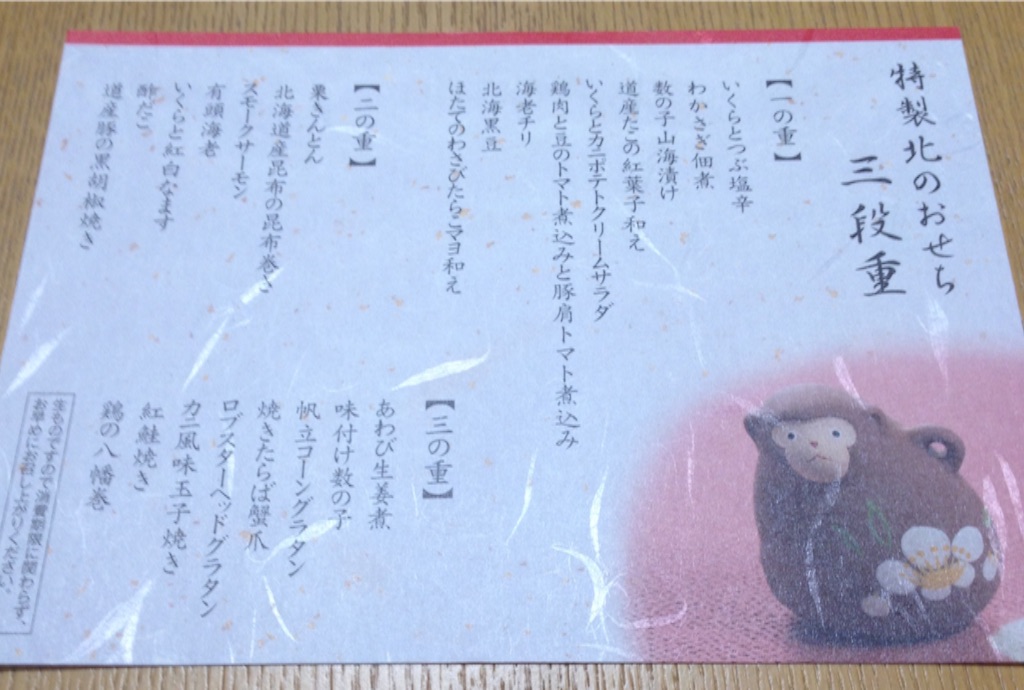 特製北のおせち
三段重
【一の重】
いくらとつぶ塩辛
わかさぎ佃煮
数の子山海漬け
道産たこの紅葉子和え
いくらとカニポテトクリームサラダ
鶏肉と豆のトマト煮込みと豚肩トマト煮込み
海老チリ
北海黒豆
ほたてのわさびたらこマヨ和え
【二の重】
栗きんとん
北海道産昆布の昆布巻き
スモークサーモン
有頭海老
いくらと紅白なます
酢だこ
道産豚の黒胡椒焼き
【三の重】
あわび生姜煮
味付け数の子
帆立コーングラタン
焼きたらば蟹爪
ロブスターヘッドグラタン
カニ風味玉子焼き
紅鮭焼き
鶏の八幡巻
生ものですので消費期限に関わらず、
お早めにお召し上がりください。